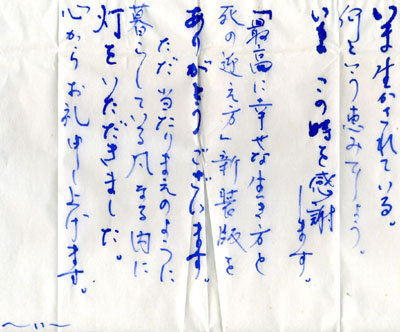 いま生かされている。
何という恵みでしょう。
いま この時を感謝
します。
「最高に幸せな生き方と
死の迎え方」新装版を
ありがとうございます。
ただ当たりまえのように
暮らしている凡なる内に
灯をいただきました。
心からお礼申し上げます。